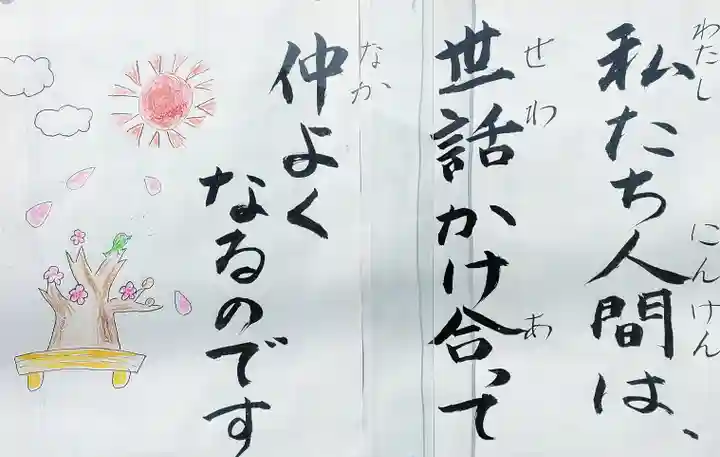 私たち人間は、
わたし
にんげん
世話かけ合って
せわ
あ
仲よく
なか
なるのです